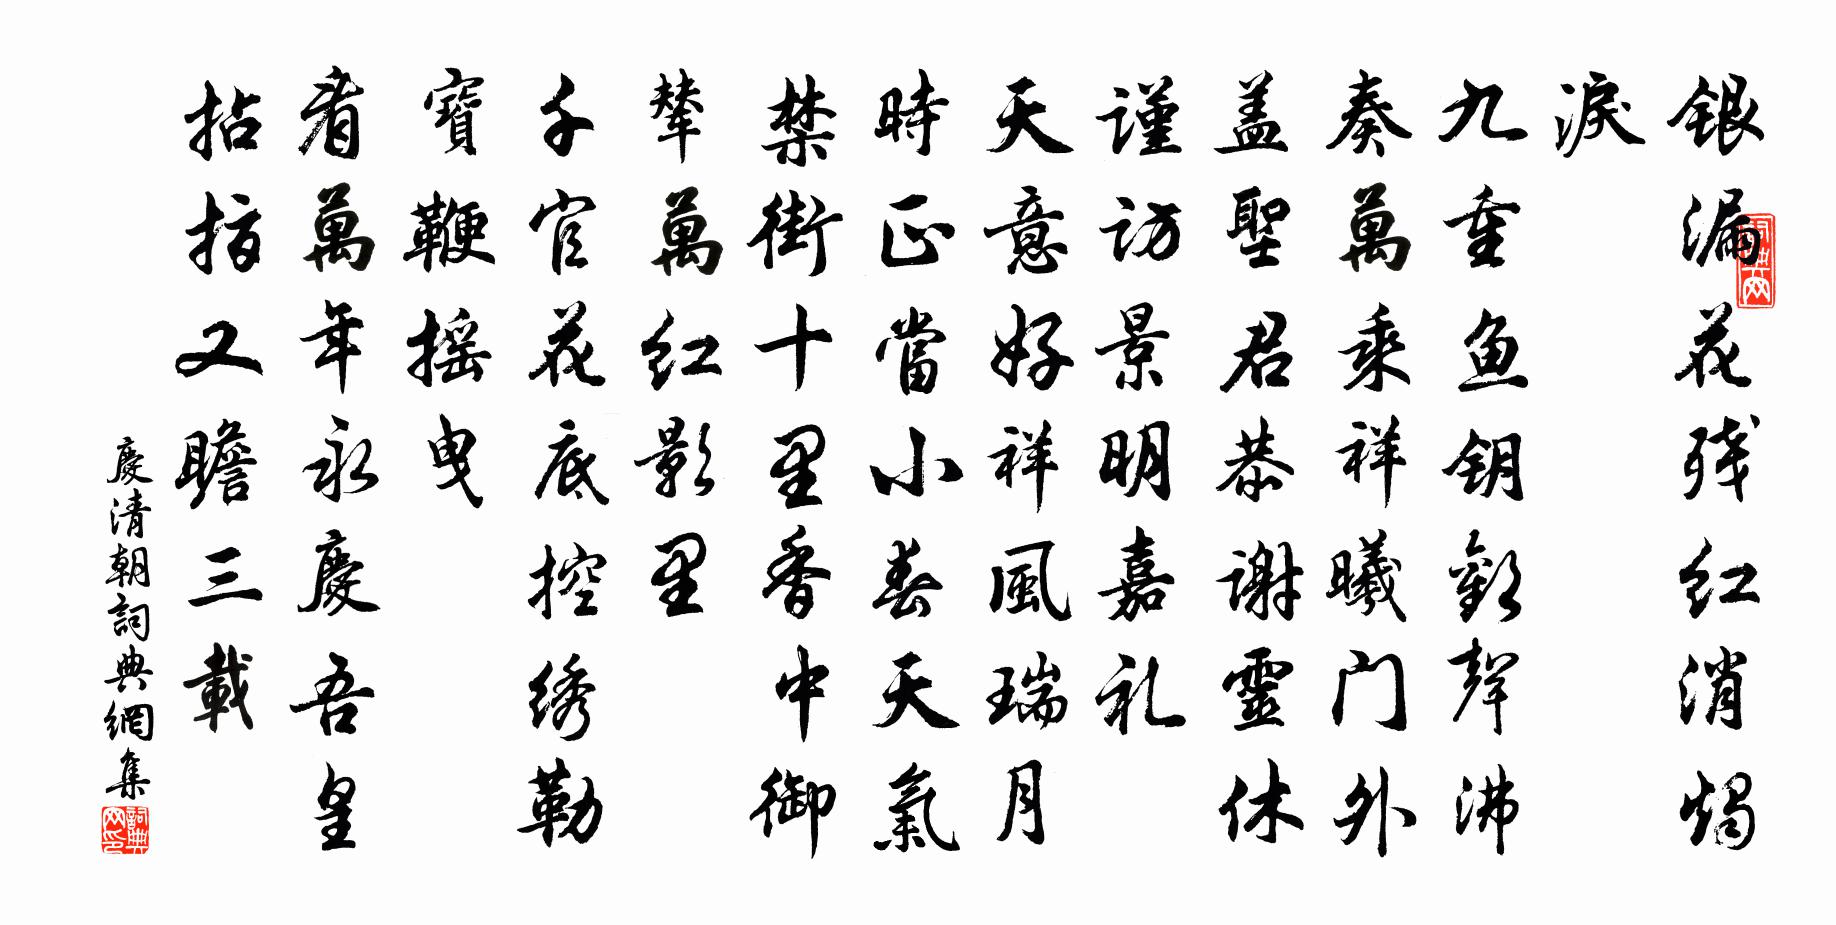 银漏花残红消燭
淚
九重鱼钥歡聲沸
奏萬乘祥曦门外
盖聖君恭谢靈休
谨访景明嘉礼
天意好祥風瑞月
時正當小春天氣
禁街十里香中御
辇萬红影里
千官花底控绣勒
寶鞭摇曳
看萬年永慶吾皇
拈指又瞻三載
慶清朝詞典網集
詞典网印